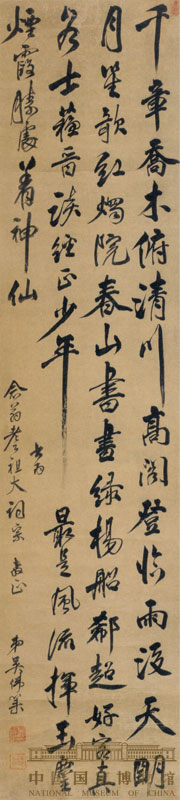 千章喬木俯清川高閣登臨雨後天明
月笙歌紅燭院春山書畫綠楊船郗超好客真
名士蘇晉談經正少年最是風流揮玉麈
煙霞勝處着神仙
書為
念翁老祖大詞宗教正
弟吳偉業
中国国家博物馆
NATIONAL MUSEUM OF CHINA